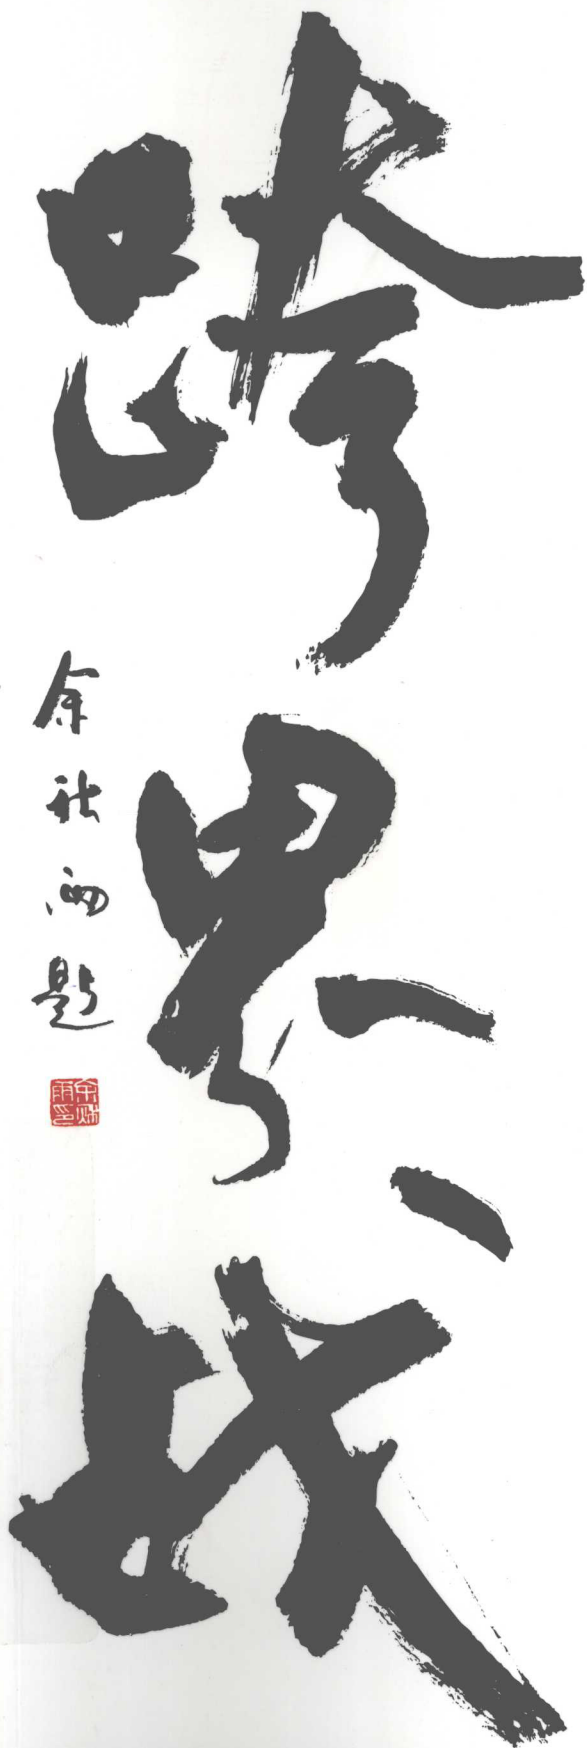 跨界战
余秋雨题
余秋雨印